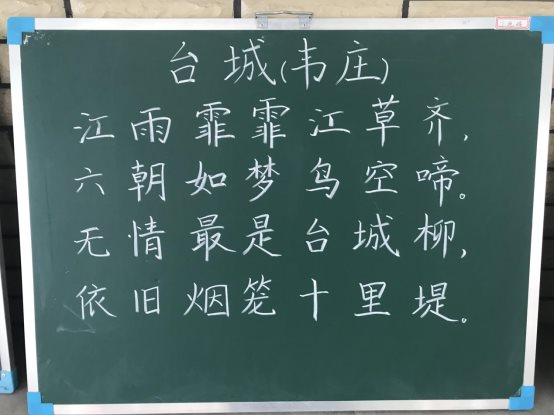 台城(韦庄)
江雨霏霏江草齐,
六朝如梦鸟空啼。
无情最是台城柳,
依旧烟笼十里堤。